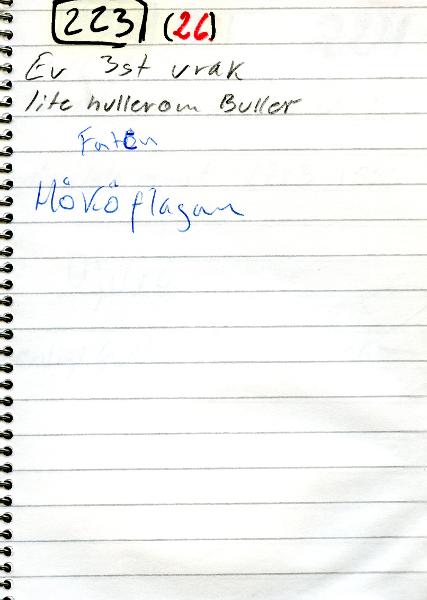 223 (26)
Ev 3st vrak
lite hullerom Buller
Hökö flagan